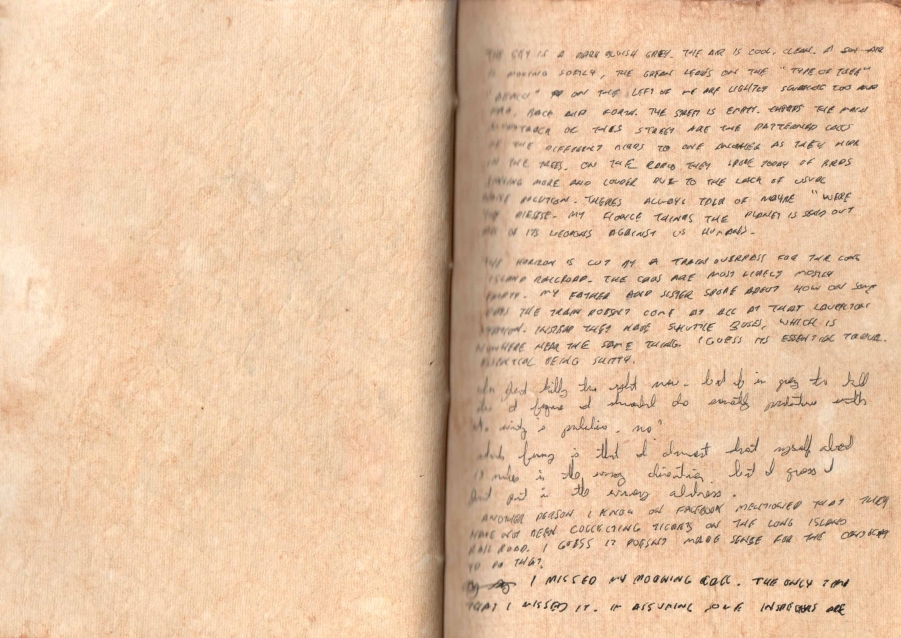 THE SKY IS A DARK BLUISH GREY. THE AIR IS COOL, CLEAN. A
IS MOVING SOFTLY, THE GREEN LEAVES ON THE "TYPE OF TREE"
ON THE LEFT OF ME ARE LIGHTLY SWAYING TOO AND
FRO, BACK AND FORTH. THE STREET IS EMPTY. THE MAIN
SOUNDTRACK OF THIS STREET ARE THE PATTERNED CALLS
OF THE DIFFERENT BIRDS TO ONE ANOTHER AS THEY HIDE
IN THE TREES. ON THE RADIO THEY SPOKE TODAY OF BIRDS
SINGING MORE AND LOUDER DUE TO THE LACK OF USUAL
NOISE POLLUTION. THERES ALWAYS TALK OF MAYBE "WE'RE
THE DISEASE. MY FIANCE THINKS THE PLANET IS SEND OUT
ALL OF ITS WEAPONS AGAINST US HUMANS.
THE HORIZON IS CUT BY A TRAIN OVERPASS FOR THE LONG
ISLAND RAILROAD. THE CARS ARE MOST LIKELY MOSTLY
EMPTY. MY FATHER AND SISTER SPOKE ABOUT HOW ON SOME
DAYS THE TRAIN DOESN'T COME AT ALL AT THAT
STATION. INSTEAD THEY HAVE SHUTTLE BUSES, WHICH IS
NOWHERE NEAR THE SAME THING. I GUESS ITS ESSENTIAL TRAVEL.
ESSENTIAL BEING SHITTY.
just killing time right now. but if im going to kill
time I figure I should do
writing in public. no?
funny is that I almost had myself
miles in the wrong direction. but I guess I
put in the wrong address.
ANOTHER PERSON I KNOW ON FACEBOOK MENTIONED THAT THEY
HAVE NOT BEEN COLLECTING TICKETS ON THE LONG ISLAND
RAIL ROAD. I GUESS IT DOESN'T MAKE SENSE FOR THE
TO DO THAT.
I MISSED MY MORNING CALL. THE ONLY TIME
THAT I MISSED IT. IM ASSUMING SOME ARE